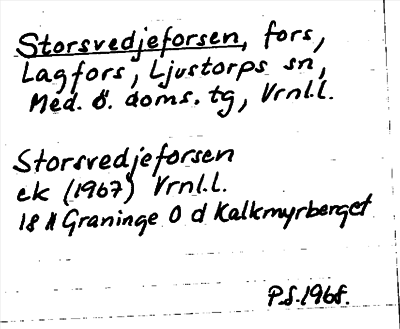 Storsvedjeforsen, fors,
Lagfors, Ljustorps sn,
Med. ö. doms. tg, Vrnl.l.
Storsvedjeforsen
ek (1967) Vrnl.l.
18 H Graninge O d Kalkmyrberget
P.S. 1968.